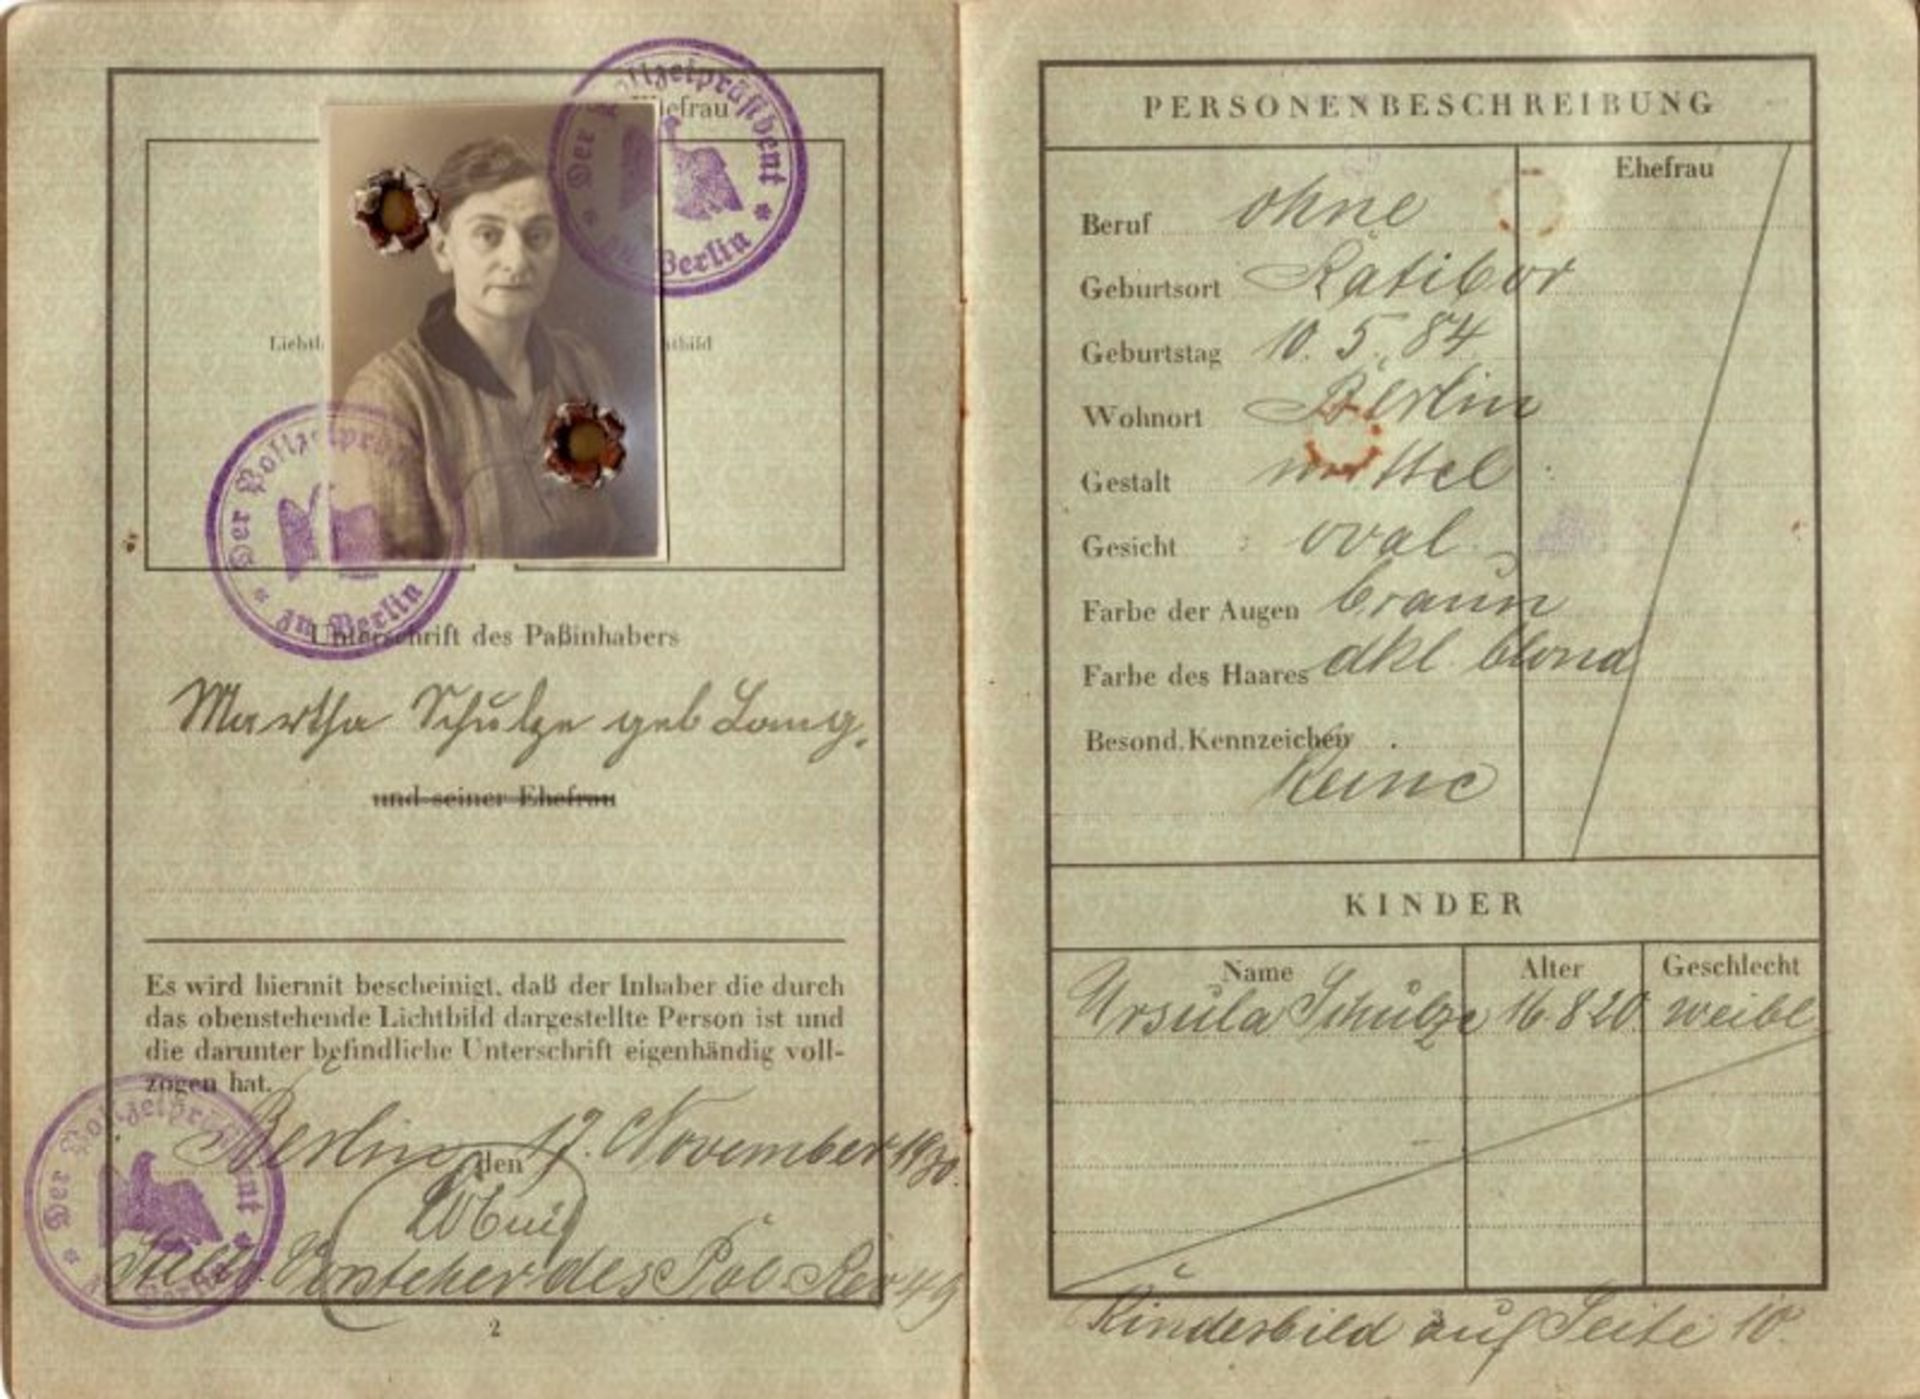 Der Polizeipräsident
zu Berlin
Der Polizeipräsident
zu Berlin
Unterschrift des Paßinhabers
Martha Schulze geb Lang.
und seiner Ehefrau
Es wird hiermit bescheinigt, daß der Inhaber die durch
das obenstehende Lichtbild dargestellte Person ist und
die darunter befindliche Unterschrift eigenhändig voll-
zogen hat.
Berlin, den 17. November 1930.
Vorsteher des Pol. Rev 49
Der Polizeipräsident
2
PERSONENBESCHREIBUNG
Ehefrau
Beruf ohne
Geburtsort Ratibor
Geburtstag 10. 5. 84
Wohnort Berlin
Gestalt mittel
Gesicht oval
Farbe der Augen braun
Farbe des Haares dkl. blond
Besond. Kennzeichen
Keine
KINDER
Name Alter Geschlecht
Ursula Schulze 16. 8 20. weibl
Kinderbild auf Seite 10.